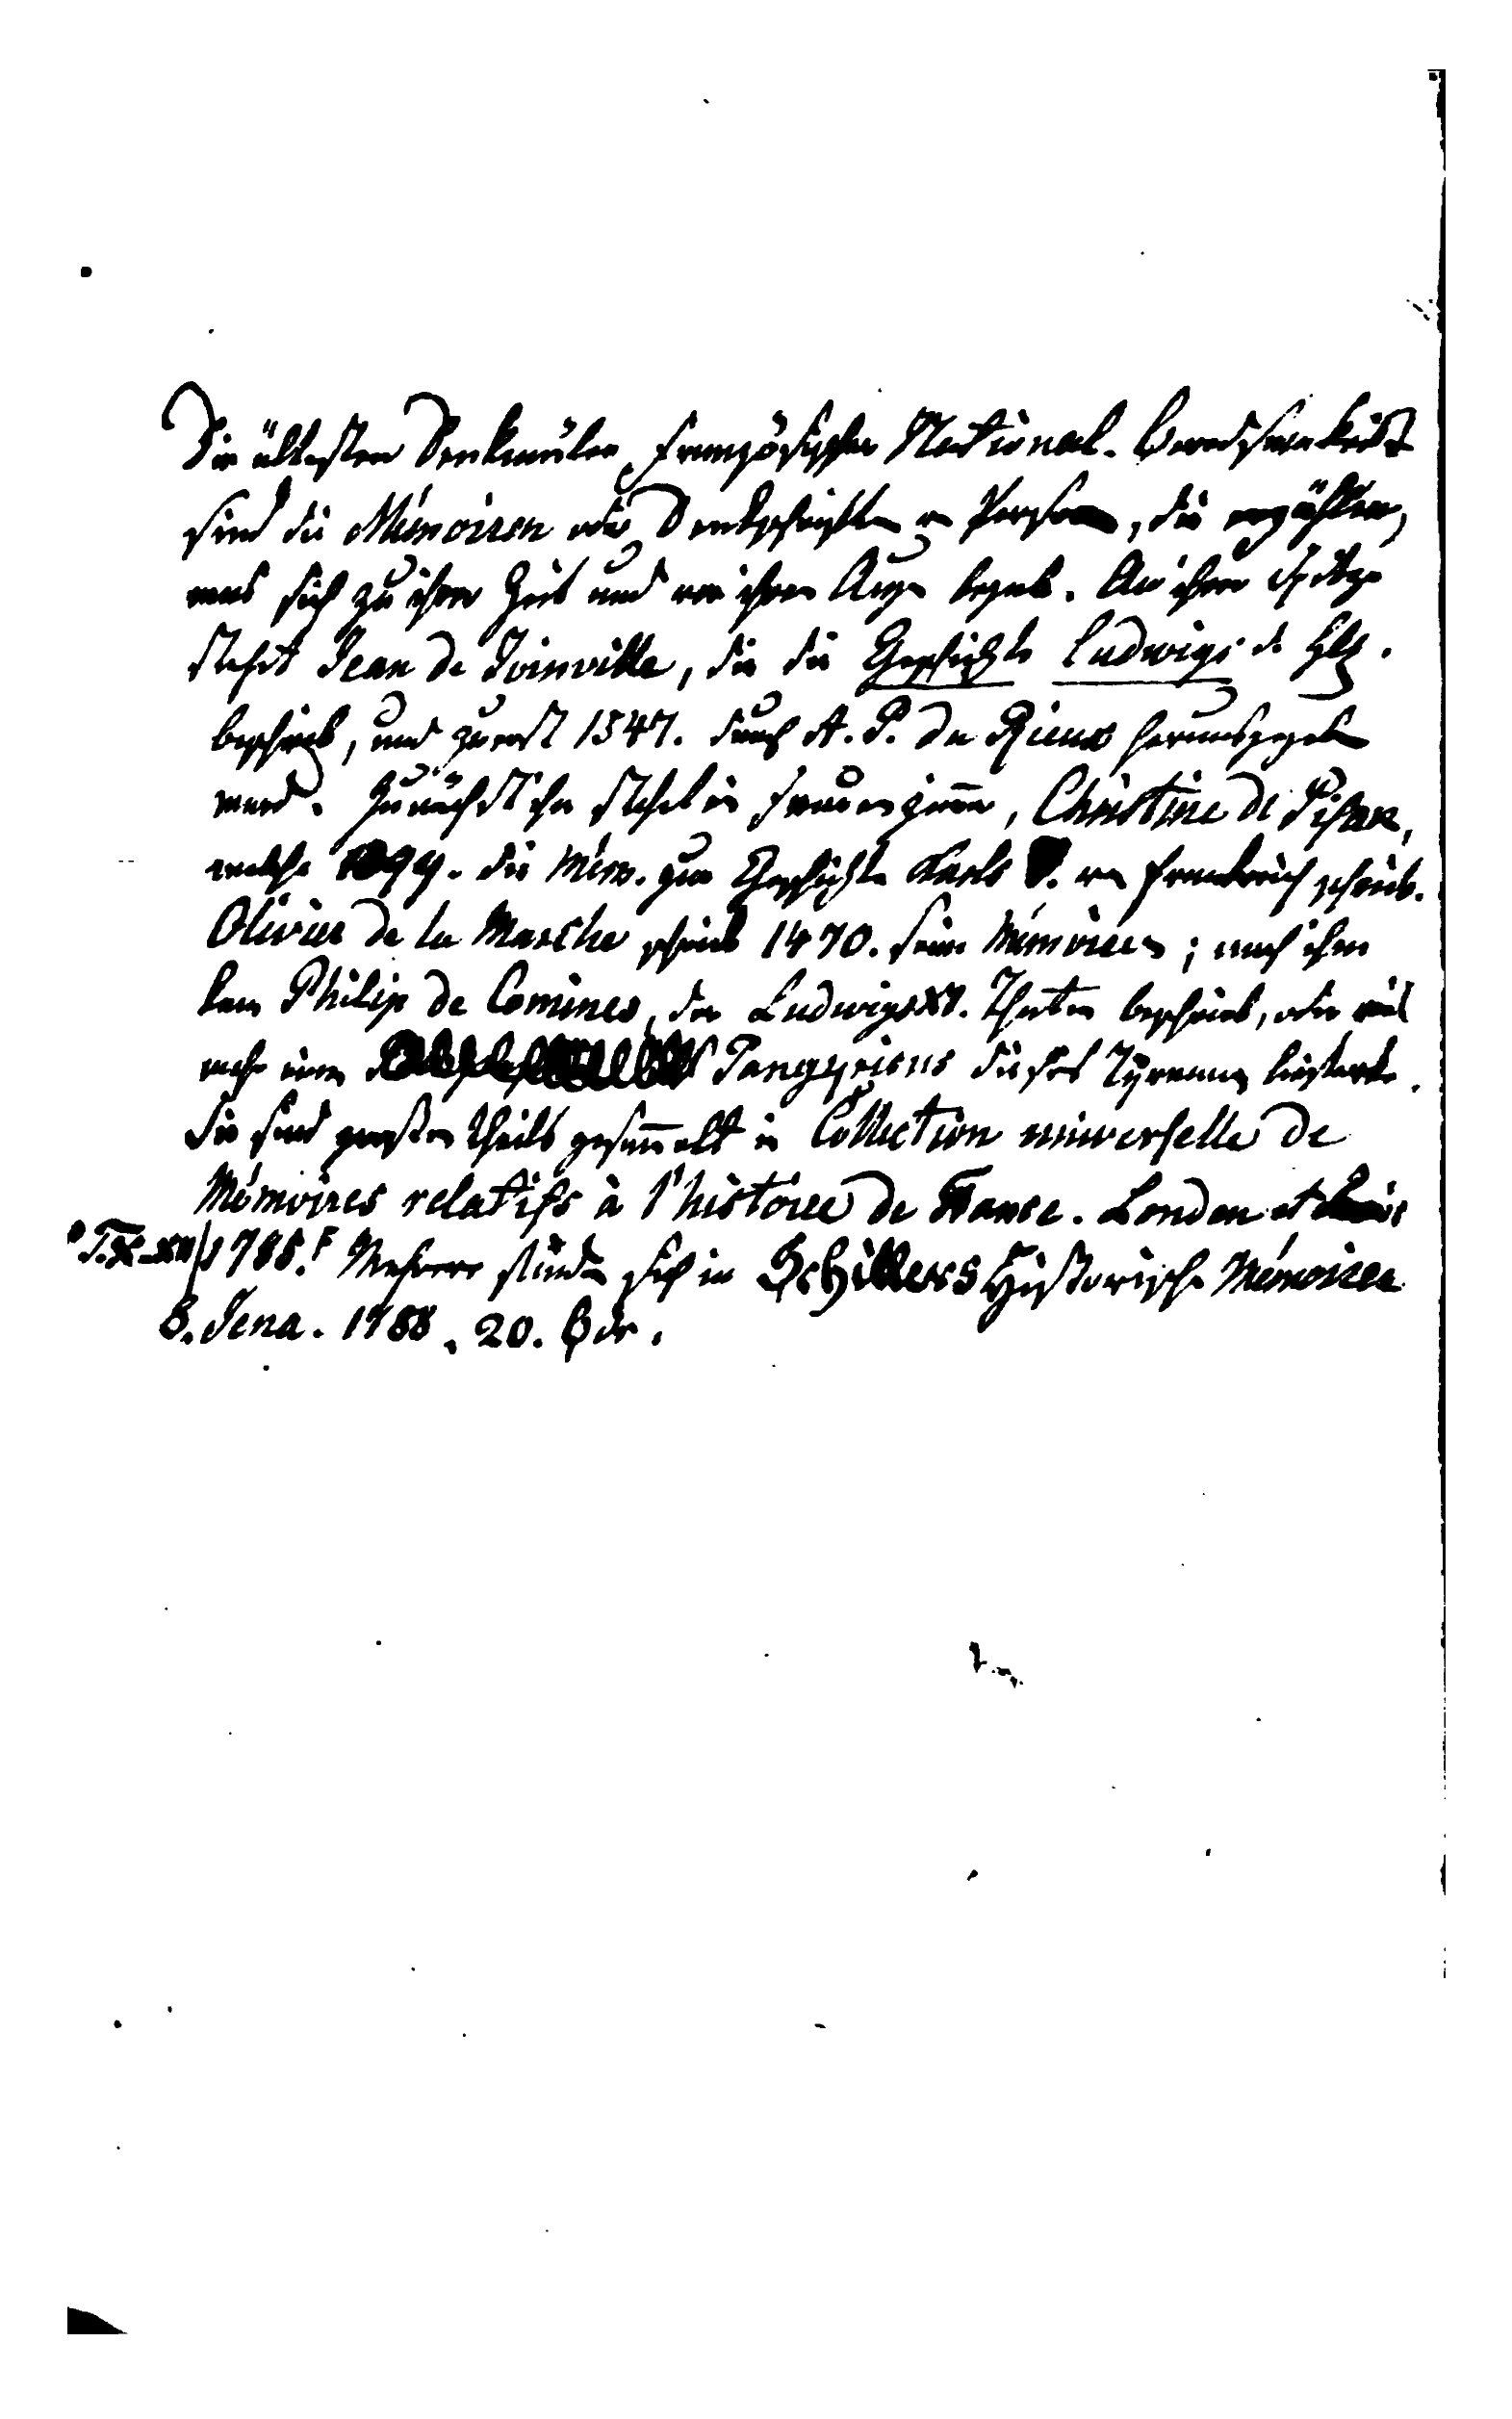 Die ältesten Denkmäler französischer National-Beredsamkeit
sind die Mémoiren oder Denkschriften von Personen, die erzählten,
was sich zu ihrer Zeit und vor ihren Augen begab. An ihrer Spitze
steht Jean de Joinville, der die Geschichte Ludwigs d. Hlg.
beschrieb, und zuerst 1547. durch A. P. de Rieux herausgegeben
ward. Zunächst ihm steht ein Frauenzimmer, Christine de Pisan,
welche die Mém. zur Geschichte Karls V. von Frankreich schrieb.
Olivier de la Marche schrieb 1470. seine Mémoires; nach ihm
kam Philip de Comines, der Ludwigs XI. Thaten beschrieb, oder viel
mehr einen Pangyricus dieses Tyrannen lieferte.
Sie sind großen Theils gesammelt in Collection universelle de
Mémoires relatifs à l'histoire de France. London et
T. X-XII 1785. Mehrere finden sich in Schillers Historische Mémoiren
8. Jena. 1788. 20. Bde.